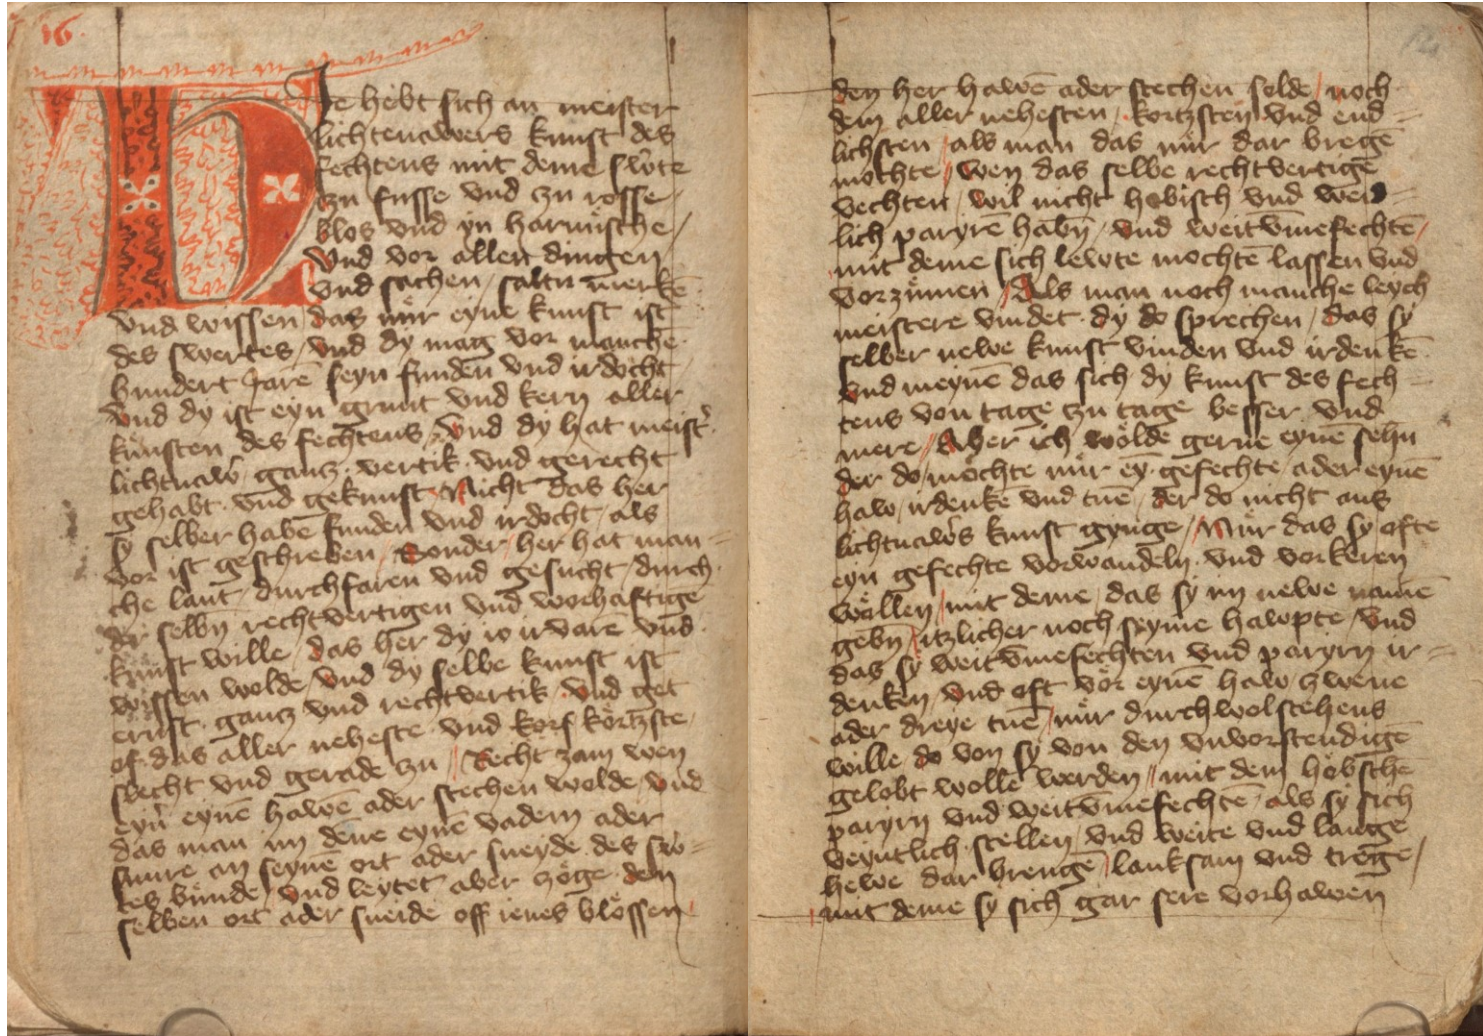 16
Hie hebt sich an meister
lichtenawers kunst des
fechtens mit deme sw̄te
zu fusse vnd zu rosse /
blos vnd yn harnüsche /
Vnd vor allen dingen
vnd sachen / saltu merkē
vnd wissen / das nür eyne kunst ist
des swertes / vnd dy mag vor manchē
hundert Jarē seyn funden vnd irdocht /
vnd dy ist eyn grunt vnd kern aller
künsten des fechtens / Vnd dy hat meist̉
lichtnaw̉ · gancz · vertik · vnd gerecht
gehabt · vnd gekunst / Nicht das her
sy selber habe funden vnd irdocht / als
vor ist geschreben / Sonder / her hat man =
che lant / durchfaren vnd gesucht / durch
der selbn̄ rechtvertigen vnd worhaftigē
kunst wille / das her dy io irvarē vnd
wissen wolde / Vnd dy selbe kunst ist
ernst · gancz vnd rechtvertik / Vnd get
of das aller neheste vnd körtzste /
slecht vnd gerade zu // Recht zam wen
eyn̉ eynē hawē ader stechen wolde / vnd
das man im dēne eynē vadem ader
snure an seynē ort ader sneyde des sw̉ =
tes bünde / vnd leytet aber zöge · den
selben ort ader sneide off ienes blössen /
den her hawē ader stechen solde / noch
dem aller nehesten / körtzsten / vnd end =
lichsten / als man das nür dar bregē
möchte // wen das selbe rechtvertigē
vechten / wil nicht hobisch vnd wend =
lich paryrē habn̄ / vnd weitv̄mefechtē /
mit deme sich lewte mochtē lassen vnd
vorzümen / Als man noch manche leych
meistere vindet · dy do sprechen / das sy
selber newe kunst vinden vnd irdenkē
vnd meynē das sich dy kunst des fech =
tens von tage zu tage besser vnd
mere // Aber ich wölde gerne eynē sehn
der do möchte nür eȳ · gefechte / ader eynē
haw / irdenkē vnd tuē / der do nicht aus
lichtnaw̉s kunst gynge / Nür das sy ofte
eyn gefechte vorwandeln vnd vorkeren
wöllen / mit deme / das sy im newe namē
gebn̄ / itzlicher noch seyme hawpte / Vnd
das sy weitv̄mefechten vnd paryrn ir =
denken / vnd oft vör eynē haw / zwene
ader dreye tuē / nür durch wolstehens
wille / do von sy von den vnvorstendigē
gelobt wollē werden // mit dem höbschē
paryrn vnd weitv̄mefechtē / als sy sich
veyntlich stellen / vnd weite vnd lange
hewe dar brengē / lanksam vnd trege /
mit deme sy sich gar sere vorhawen